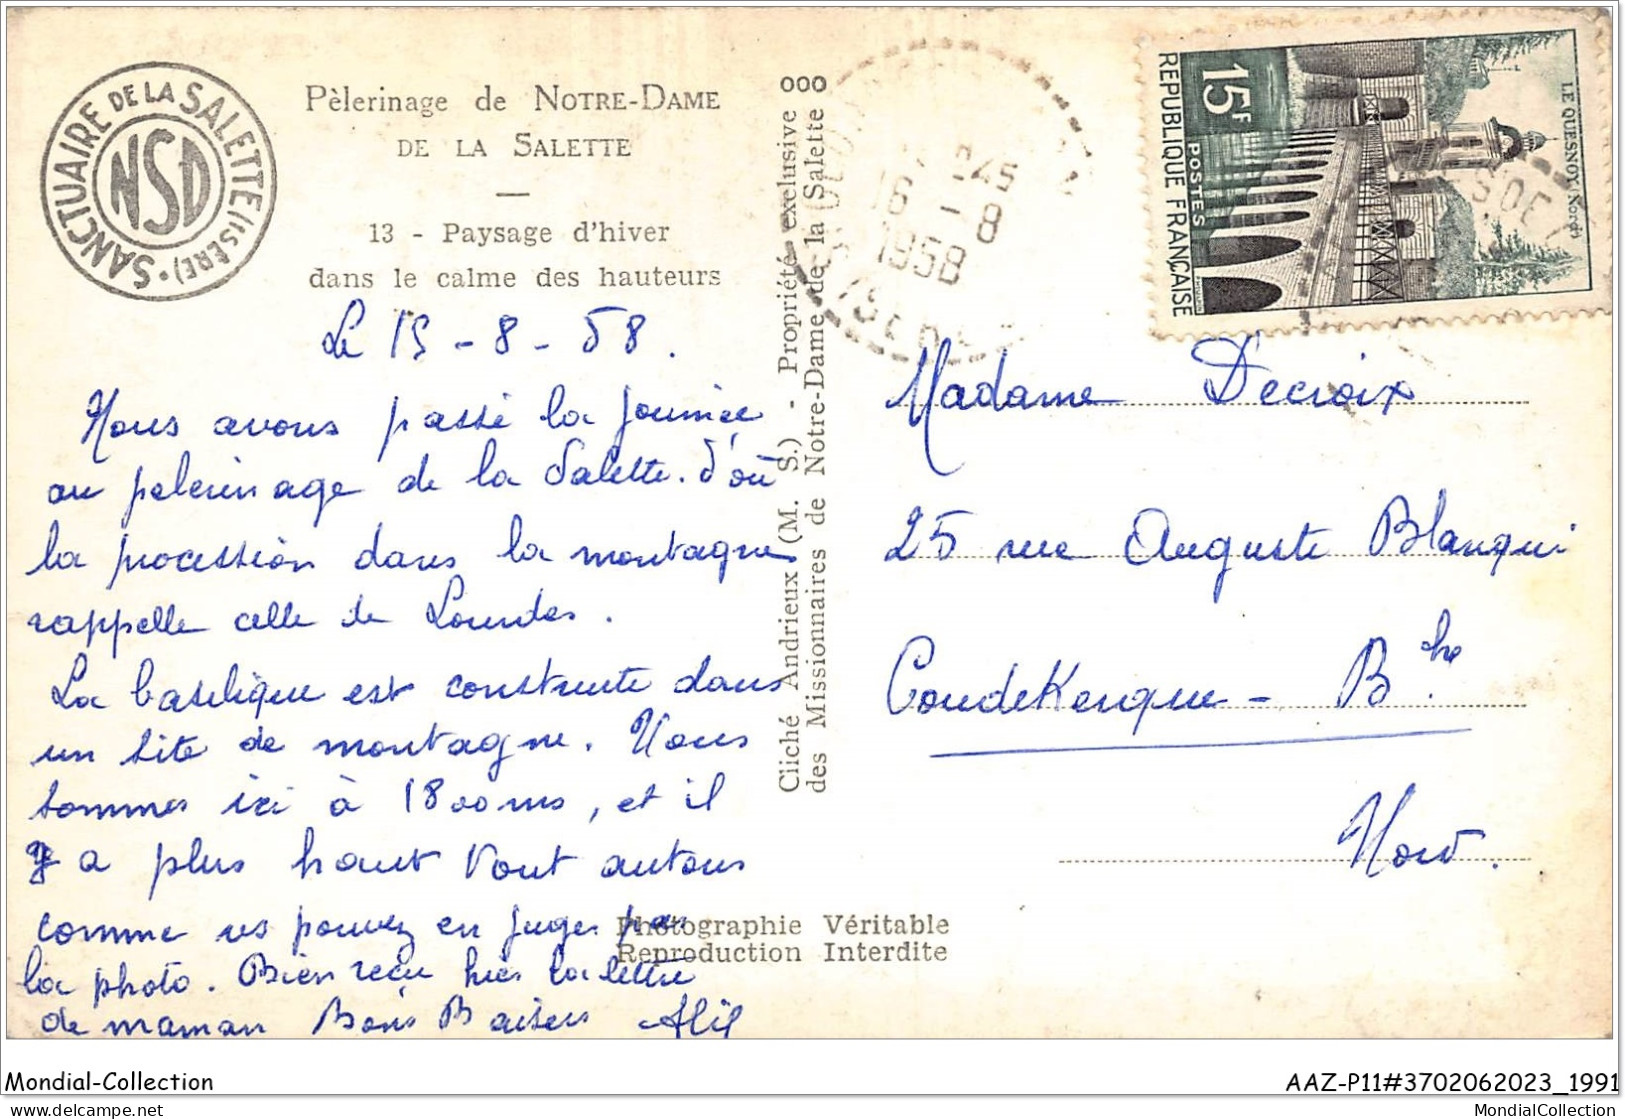 SANCTUAIRE DE LA SALETTE (ISÈRE) •
NSD
Pèlerinage de NOTRE-DAME
DE LA SALETTE
13 - Paysage d'hiver
dans le calme des hauteurs
Le 15 - 8 - 58.
Nous avons passé la journée
au pelerinage de la Salette. d'où
la procession dans la montagne
rappelle celle de Lourdes.
La basilique est construite dans
un site de montagne. Nous
sommes ici à 1800 ms, et il
y a plus haut tout autour
comme vs pouvez en juger par
la photo. Bien reçu hier la lettre
de maman Bons Baisers
Cliché Andrieux (M. S.) - Propriété exclusive
des Missionnaires de Notre-Dame de la Salette
Photographie Véritable
Reproduction Interdite
16 - 8
1958
15F
POSTES
REPUBLIQUE FRANÇAISE
LE QUESNOY (Nord)
Madame Decroix
25 rue Auguste Blanqui
Coudekerque - Bche
Nord.
Mondial-Collection
AAZ-P11#3702062023_1991
www.delcampe.net
MondialCollection